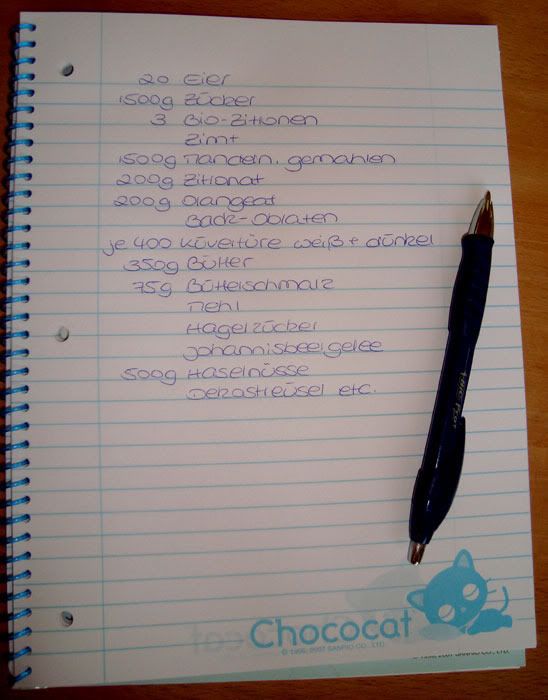 20 Eier
1500g Zucker
3 Bio-Zitronen
Zimt
1500g Mandeln, gemahlen
200g Zitronat
200g Orangeat
Back-Oblaten
je 400 Kuvertüre weiß + dunkel
350g Butter
75g Butterschmalz
Mehl
Hagelzucker
Johannisbeergelee
500g Haselnüsse
Dekostreusel etc.
Chococat